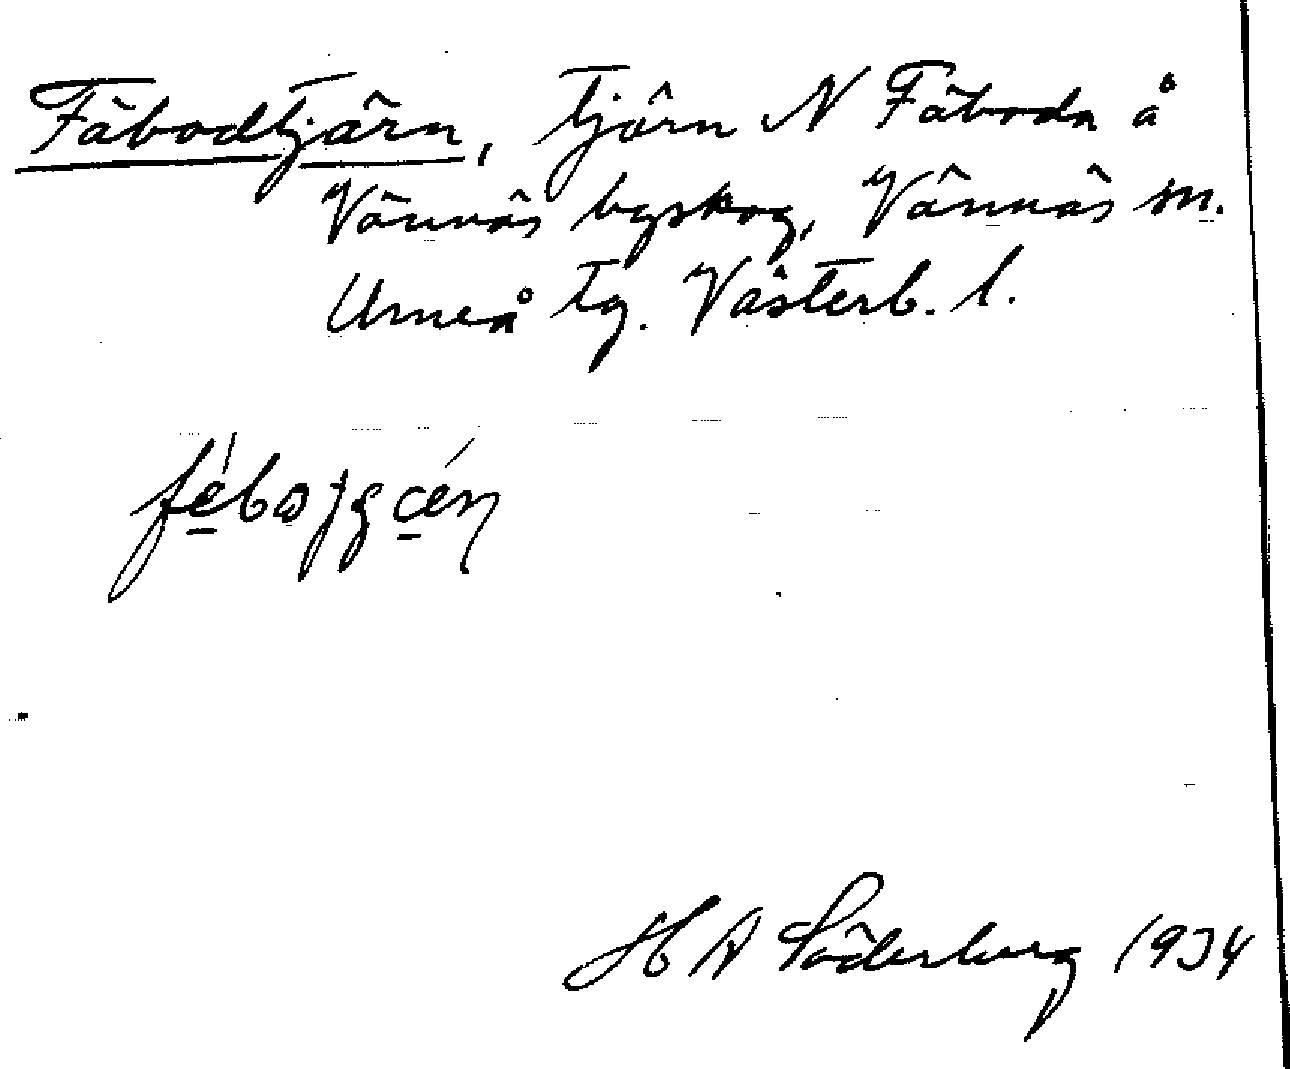 Fäbodtjärn, tjärn N Fäboda å
Vännäs byskog, Vännäs sn.
Umeå tg. Västerb. l.
H A Söderberg 1934